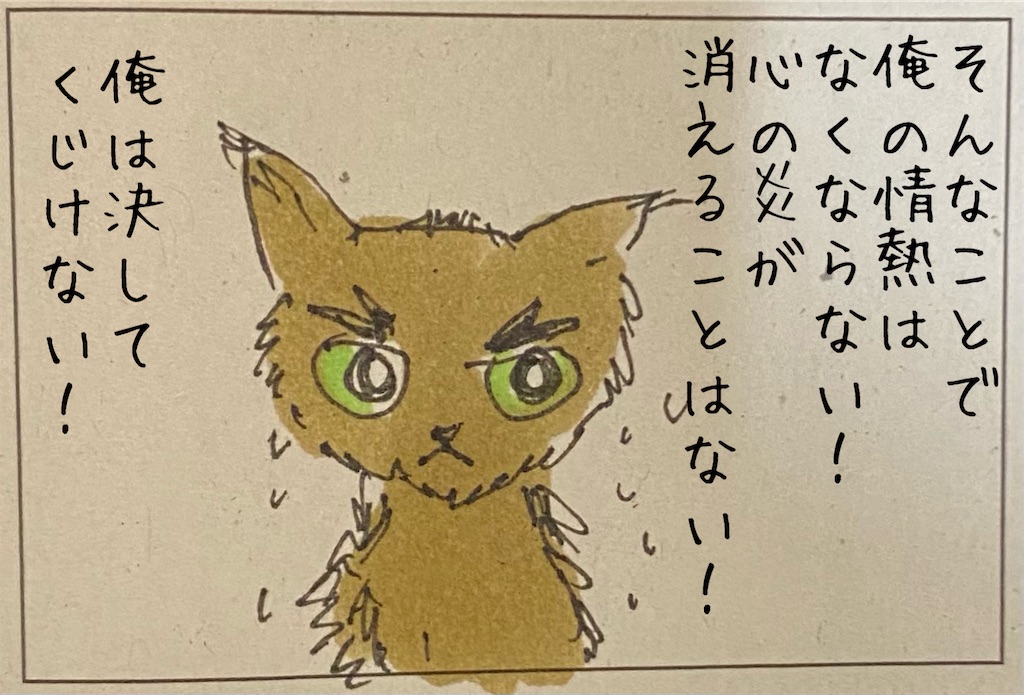 そんなことで
俺の情熱は
なくならない！
心の炎が
消えることはない！
俺は決して
くじけない！